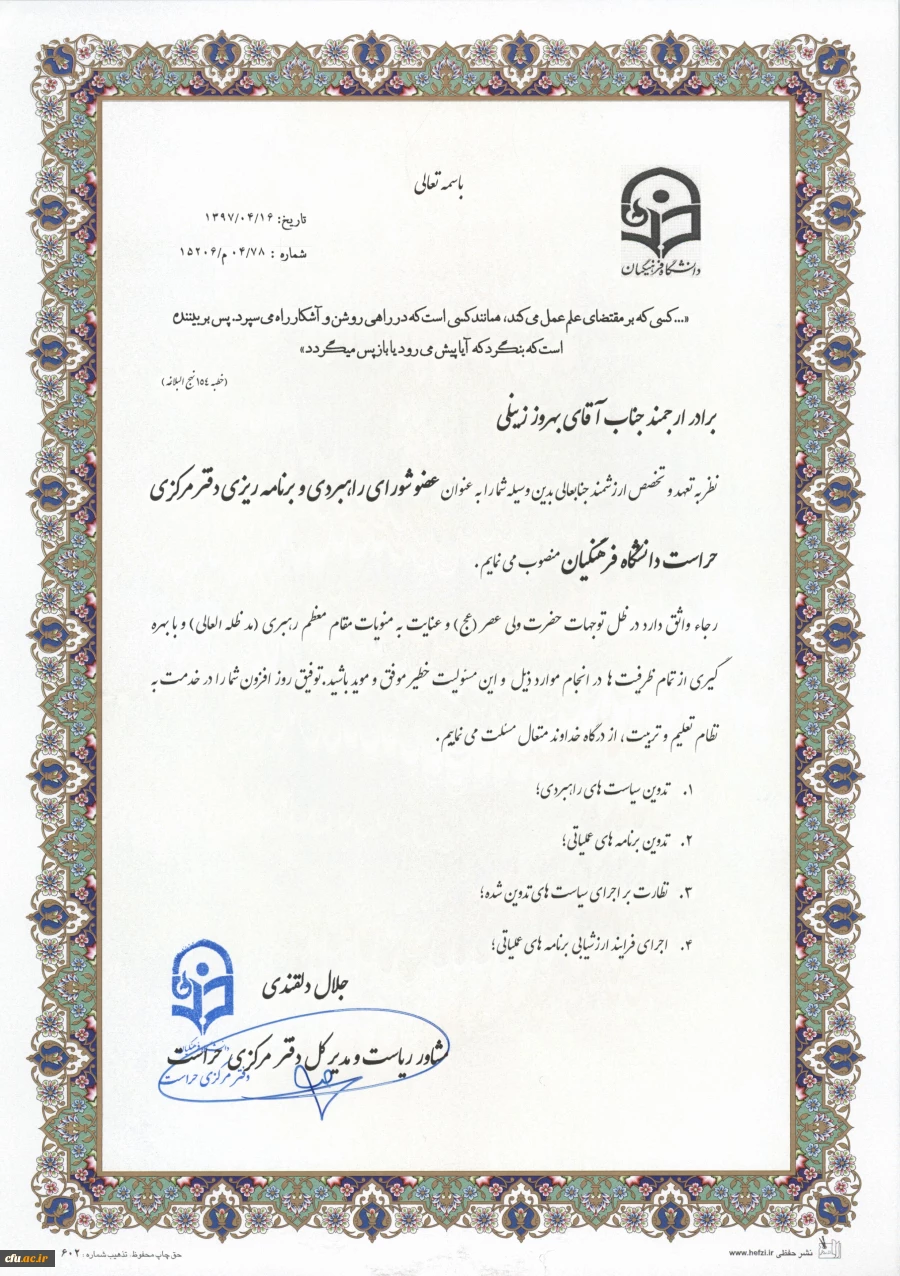 باسمه تعالی
دانشگاه فرهنگیان
تاریخ: ۱۳۹۷/۰۴/۱۶
شماره : ۰۴/۷۸م/۱۵۲۰۶
«...کسی که بر مقتضای علم عمل می کند، همانند کسی است که در راهی روشن و آشکار راه می سپرد. پس بر بیننده
است که بنگرد که آیا پیش می رود یا باز پس میگردد»
(خطبه ۱۵۴ نهج البلاغه)
برادر ارجمند جناب آقای بهروز زینلی
نظر به تعهد و تخصص ارزشمند جنابعالی بدین وسیله شما را به عنوان عضو شورای راهبردی و برنامه ریزی دفتر مرکزی
حراست دانشگاه فرهنگیان منصوب می نمایم.
رجاء واثق دارد در ظل توجهات حضرت ولی عصر (عج) و عنایت به منویات مقام معظم رهبری (مد ظله العالی) و با بهره
گیری از تمام ظرفیت ها در انجام موارد ذیل و این مسئولیت خطیر موفق و موید باشید. توفیق روز افزون شما را در خدمت به
نظام تعلیم و تربیت، از درگاه خداوند متعال مسئلت می نماییم.
۱. تدوین سیاست های راهبردی؛
۲. تدوین برنامه های عملیاتی؛
۳. نظارت بر اجرای سیاست های تدوین شده؛
۴. اجرای فرایند ارزشیابی برنامه های عملیاتی؛
جلال دلقندی
مشاور ریاست و مدیر کل دفتر مرکزی حراست
دانشگاه فرهنگیان
دفتر مرکزی حراست
نشر حفظی www.hefzi.ir
حق چاپ محفوظ. تذهیب شماره : ۶۰۲
cfu.ac.ir